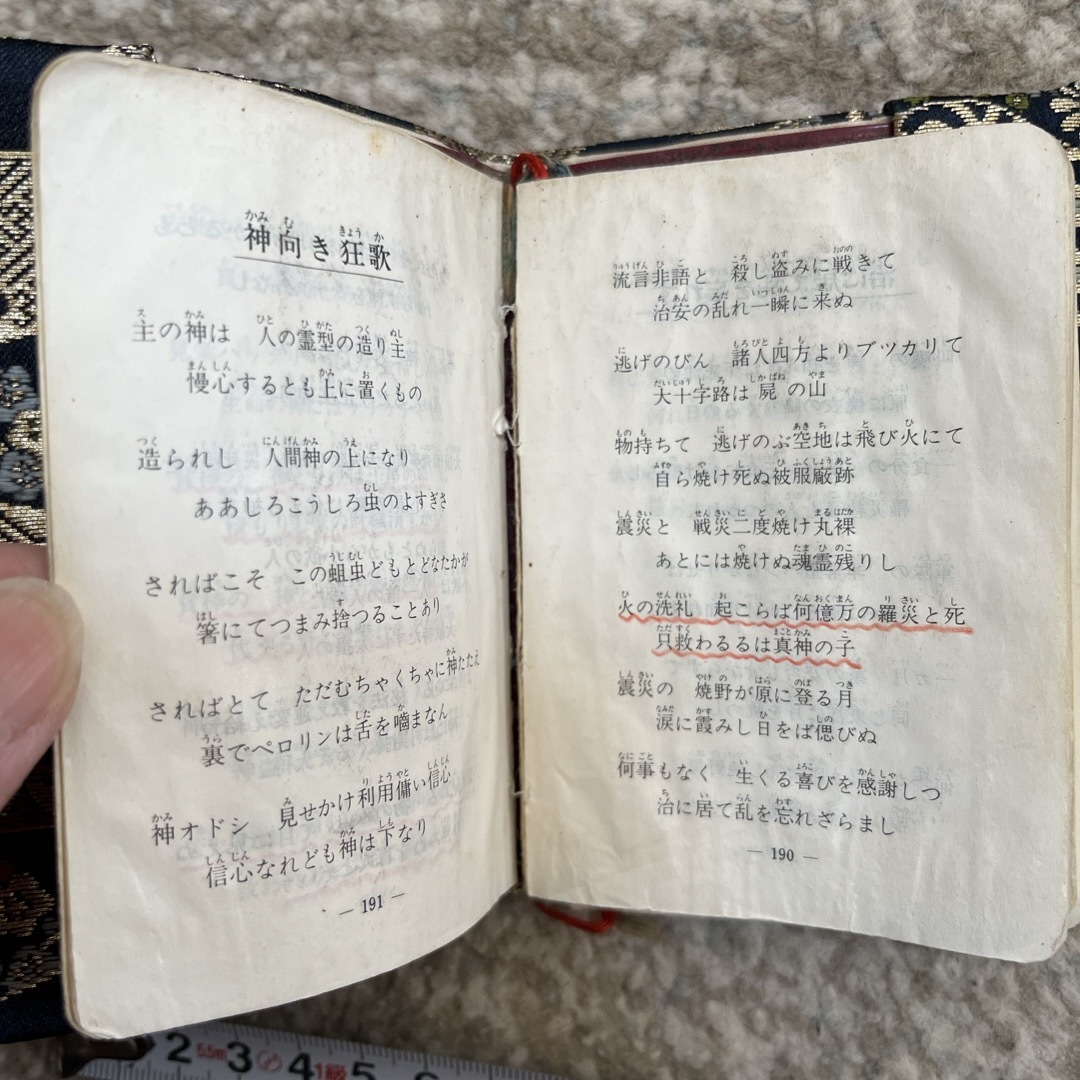 流言非語と　殺し盗みに戦きて
治安の乱れ一瞬に来ぬ
逃げのびん　諸人四方よりブツカリて
大十字路は屍の山
物持ちて　逃げのぶ空地は飛び火にて
自ら焼け死ぬ被服廠跡
震災と　戦災二度焼け丸裸
あとには焼けぬ魂霊残りし
火の洗礼　起こらば何億万の羅災と死
只救わるるは真神の子
震災の　焼野が原に登る月
涙に霞みし日をば偲びぬ
何事もなく　生くる喜びを感謝しつ
治に居て乱を忘れざらまし
— 190 —
神向き狂歌
主の神は　人の霊型の造り主
慢心するとも上に置くもの
造られし　人間神の上になり
ああしろこうしろ虫のよすぎさ
さればこそ　この蛆虫どもとどなたかが
箸にてつまみ捨つることあり
さればとて　ただむちゃくちゃに神たたえ
裏でペロリンは舌を嚙まなん
神オドシ　見せかけ利用傭い信心
信心なれども神は下なり
— 191 —
2 5.5m 3 4 1級 5